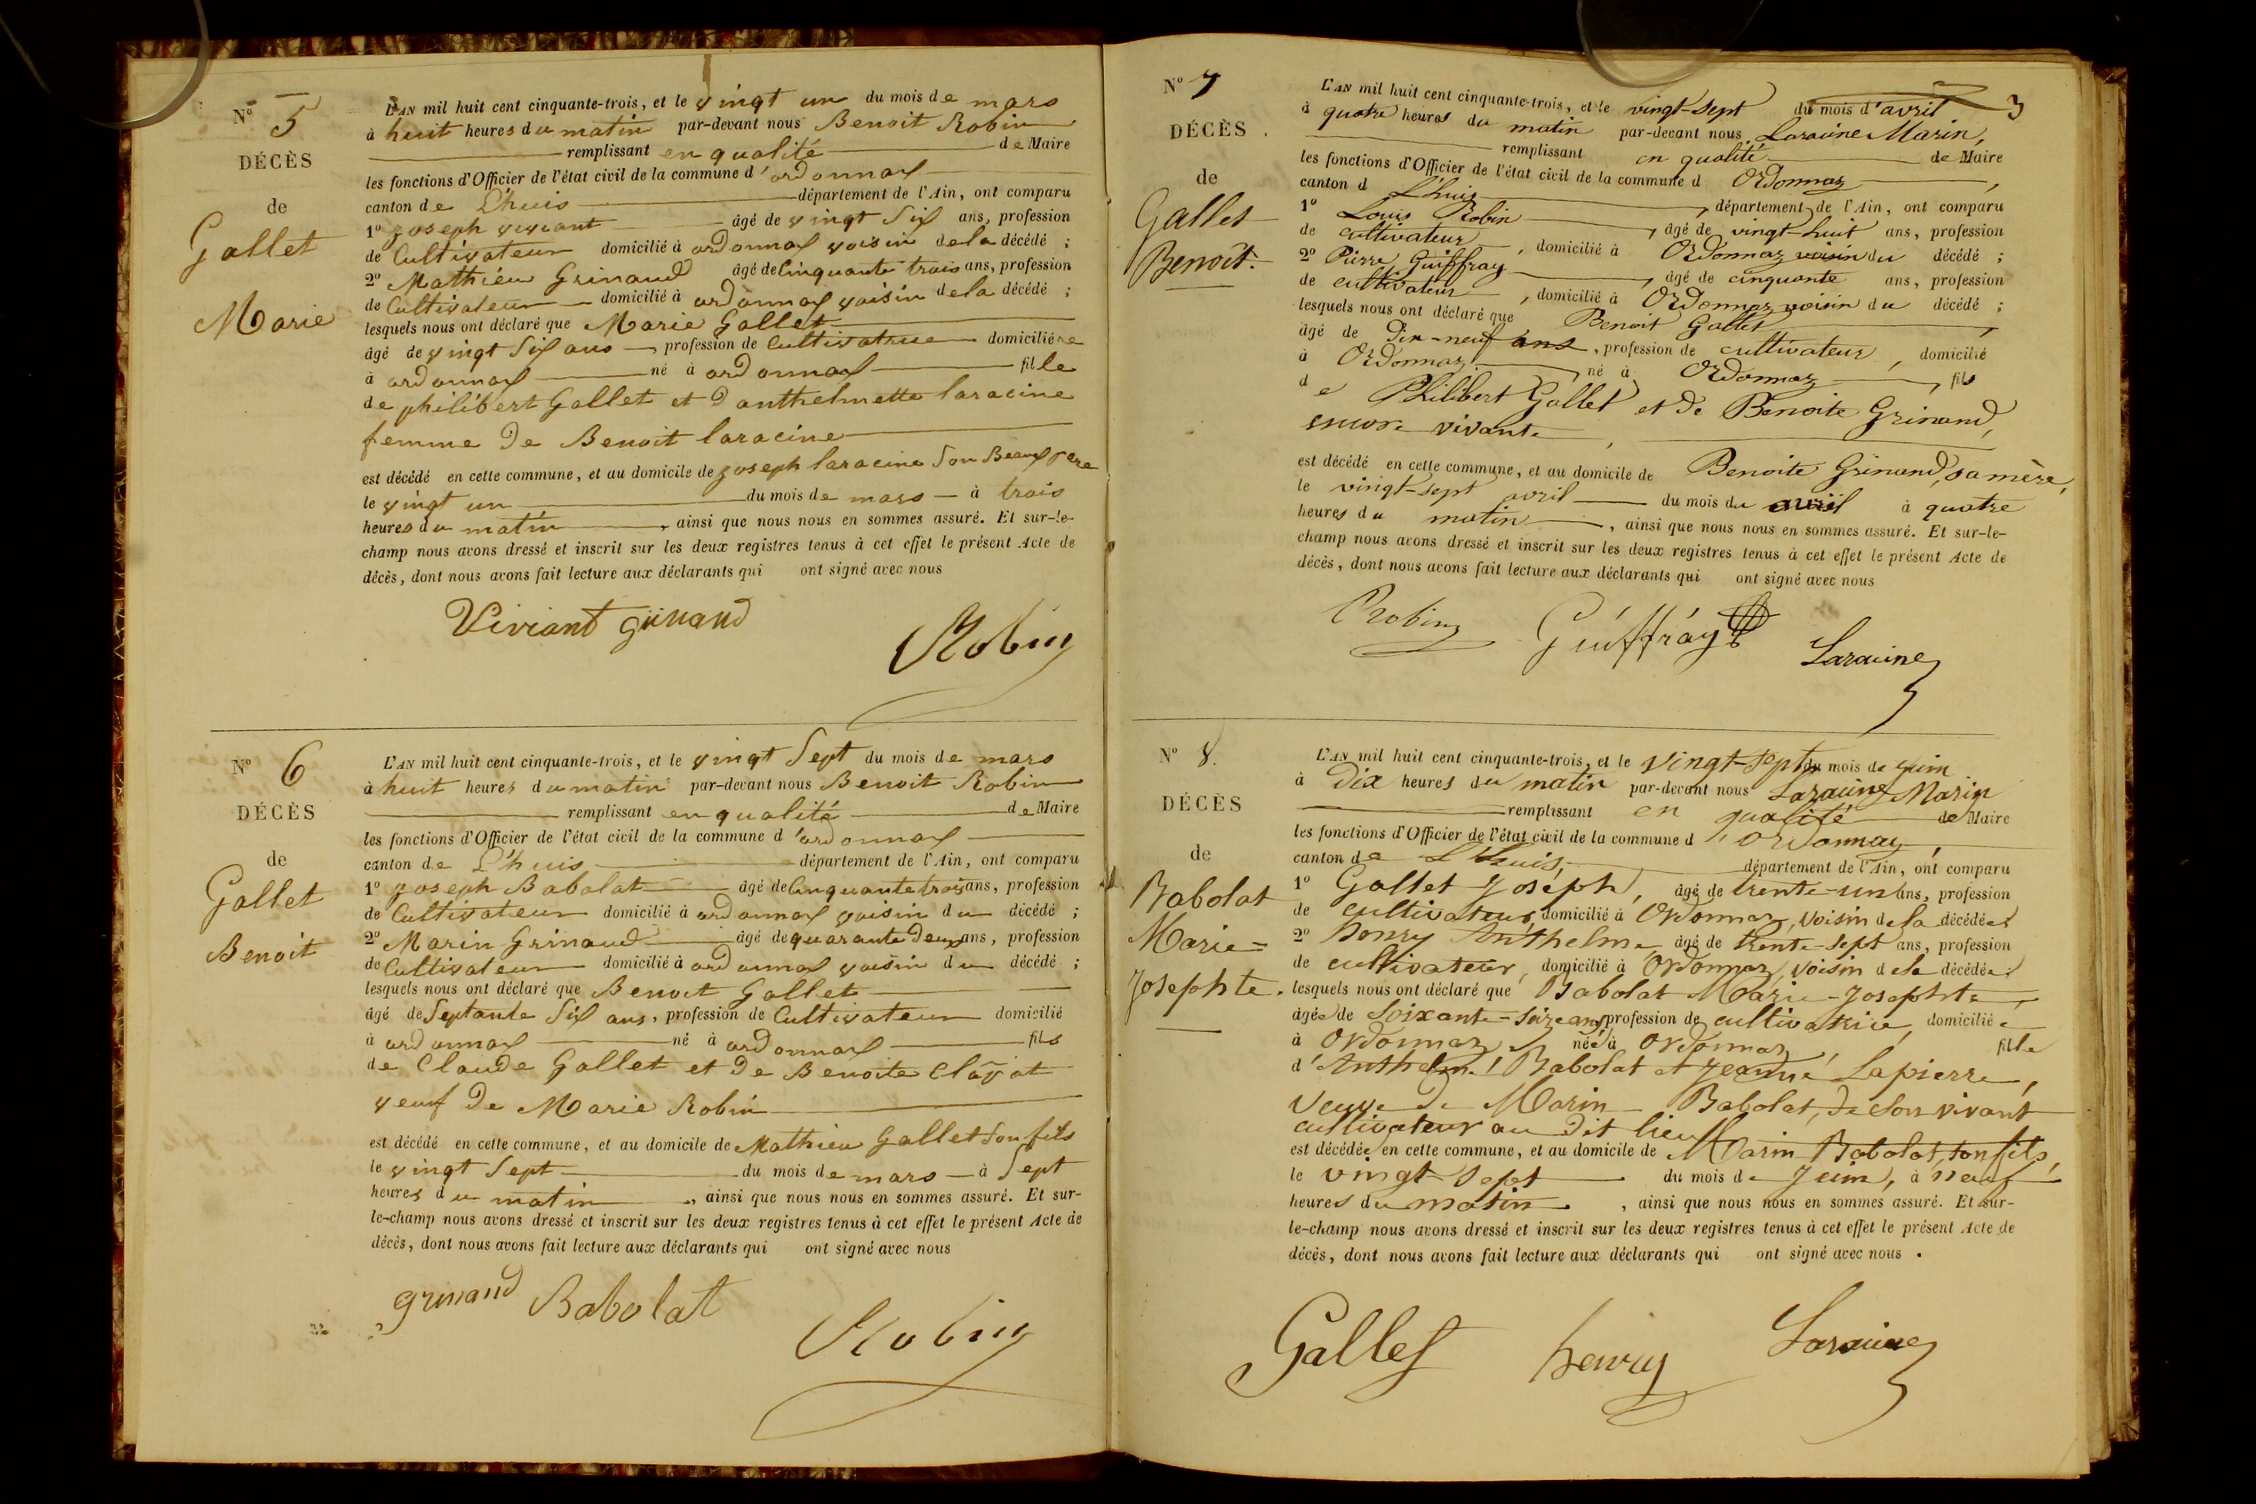 N° 5
DÉCÈS
de
Gallet
Marie
L'AN mil huit cent cinquante-trois, et le vingt un du mois de mars
à huit heures du matin par-devant nous Benoit Robin
remplissant en qualité de Maire
les fonctions d'Officier de l'état civil de la commune d'ordonnax
canton de L'huis département de l'Ain, ont comparu
1° joseph viviant âgé de vingt six ans, profession
de Cultivateur domicilié à ordonnax voisin de la décédé ;
2° Mathieu Grinand âgé de Cinquante trois ans, profession
de Cultivateur domicilié à ordonnax voisin de la décédé ;
lesquels nous ont déclaré que Marie Gallet
âgé de vingt six ans, profession de Cultivatrice domiciliére
à ordonnax né à ordonnax fille
de philibert Gallet et d'anthelmette laracine
femme de Benoit laracine
est décédé en cette commune, et au domicile de joseph laracine son Beaux pere
le vingt un du mois de mars à trois
heures du matin, ainsi que nous nous en sommes assuré. Et sur-le-
champ nous avons dressé et inscrit sur les deux registres tenus à cet effet le présent Acte de
décès, dont nous avons fait lecture aux déclarants qui ont signé avec nous
Viviant grinand
Robin
N° 6
DÉCÈS
de
Gallet
Benoit
L'AN mil huit cent cinquante-trois, et le vingt sept du mois de mars
à huit heures du matin par-devant nous Benoit Robin
remplissant en qualité de Maire
les fonctions d'Officier de l'état civil de la commune d'ordonnax
canton de L'huis département de l'Ain, ont comparu
1° joseph Babolat âgé de Cinquante trois ans, profession
de Cultivateur domicilié à ordonnax voisin du décédé ;
2° Marin Grinand âgé de quarante deux ans, profession
de Cultivateur domicilié à ordonnax voisin du décédé ;
lesquels nous ont déclaré que Benoit Gallet
âgé de septante six ans, profession de Cultivateur domicilié
à ordonnax né à ordonnax fils
de Claude Gallet et de Benoite Clavat
veuf de Marie Robin
est décédé en cette commune, et au domicile de Mathieu Gallet son fils
le vingt sept du mois de mars à sept
heures du matin, ainsi que nous nous en sommes assuré. Et sur-
le-champ nous avons dressé et inscrit sur les deux registres tenus à cet effet le présent Acte de
décès, dont nous avons fait lecture aux déclarants qui ont signé avec nous
grinand Babolat
Robin
3
N° 7
DÉCÈS
de
Gallet
Benoît.
L'AN mil huit cent cinquante-trois, et le vingt-sept du mois d'avril
à quatre heures du matin par-devant nous Laracine Marin,
remplissant en qualité de Maire
les fonctions d'Officier de l'état civil de la commune d Ordonnaz,
canton d L'huis, département de l'Ain, ont comparu
1° Louis Robin, âgé de vingt-huit ans, profession
de cultivateur, domicilié à Ordonnaz voisin du décédé ;
2° Pierre Guiffray, âgé de cinquante ans, profession
de cultivateur, domicilié à Ordonnaz voisin du décédé ;
lesquels nous ont déclaré que Benoit Gallet,
âgé de dix-neuf ans, profession de cultivateur, domicilié
à Ordonnaz, né à Ordonnaz, fils
de Philibert Gallet et de Benoite Grinand,
encore vivante,
est décédé en cette commune, et au domicile de Benoite Grinand, sa mère,
le vingt-sept avril du mois du avril à quatre
heures du matin, ainsi que nous nous en sommes assuré. Et sur-le-
champ nous avons dressé et inscrit sur les deux registres tenus à cet effet le présent Acte de
décès, dont nous avons fait lecture aux déclarants qui ont signé avec nous
Robin Guiffray
Laracine
N° 8.
DÉCÈS
de
Babolat
Marie=
Josephte.
L'AN mil huit cent cinquante-trois, et le vingt-sept du mois de juin
à Dix heures du matin par-devant nous Laracine Marin
remplissant en qualité de Maire
les fonctions d'Officier de l'état civil de la commune d'Ordonnaz,
canton de L'huis, département de l'Ain, ont comparu
1° Gallet Joseph, âgé de trente-un ans, profession
de cultivateur, domicilié à Ordonnaz, voisin de la décédée
2° henry Anthelme âgé de trente-sept ans, profession
de cultivateur, domicilié à Ordonnaz, voisin de la décédée
lesquels nous ont déclaré que Babolat Marie-Josephte,
âgée de soixante-seize ans, profession de cultivatrice, domiciliée
à Ordonnaz, née à Ordonnaz, fille
d'Anthelme Babolat et Jeanne Lapierre,
veuve de Marin Babolat, de son vivant
cultivateur au dit lieu
est décédée en cette commune, et au domicile de Marin Babolat, son fils,
le vingt-sept du mois de juin, à neuf
heures du matin, ainsi que nous nous en sommes assuré. Et sur-
le-champ nous avons dressé et inscrit sur les deux registres tenus à cet effet le présent Acte de
décès, dont nous avons fait lecture aux déclarants qui ont signé avec nous.
Gallet henry Laracine